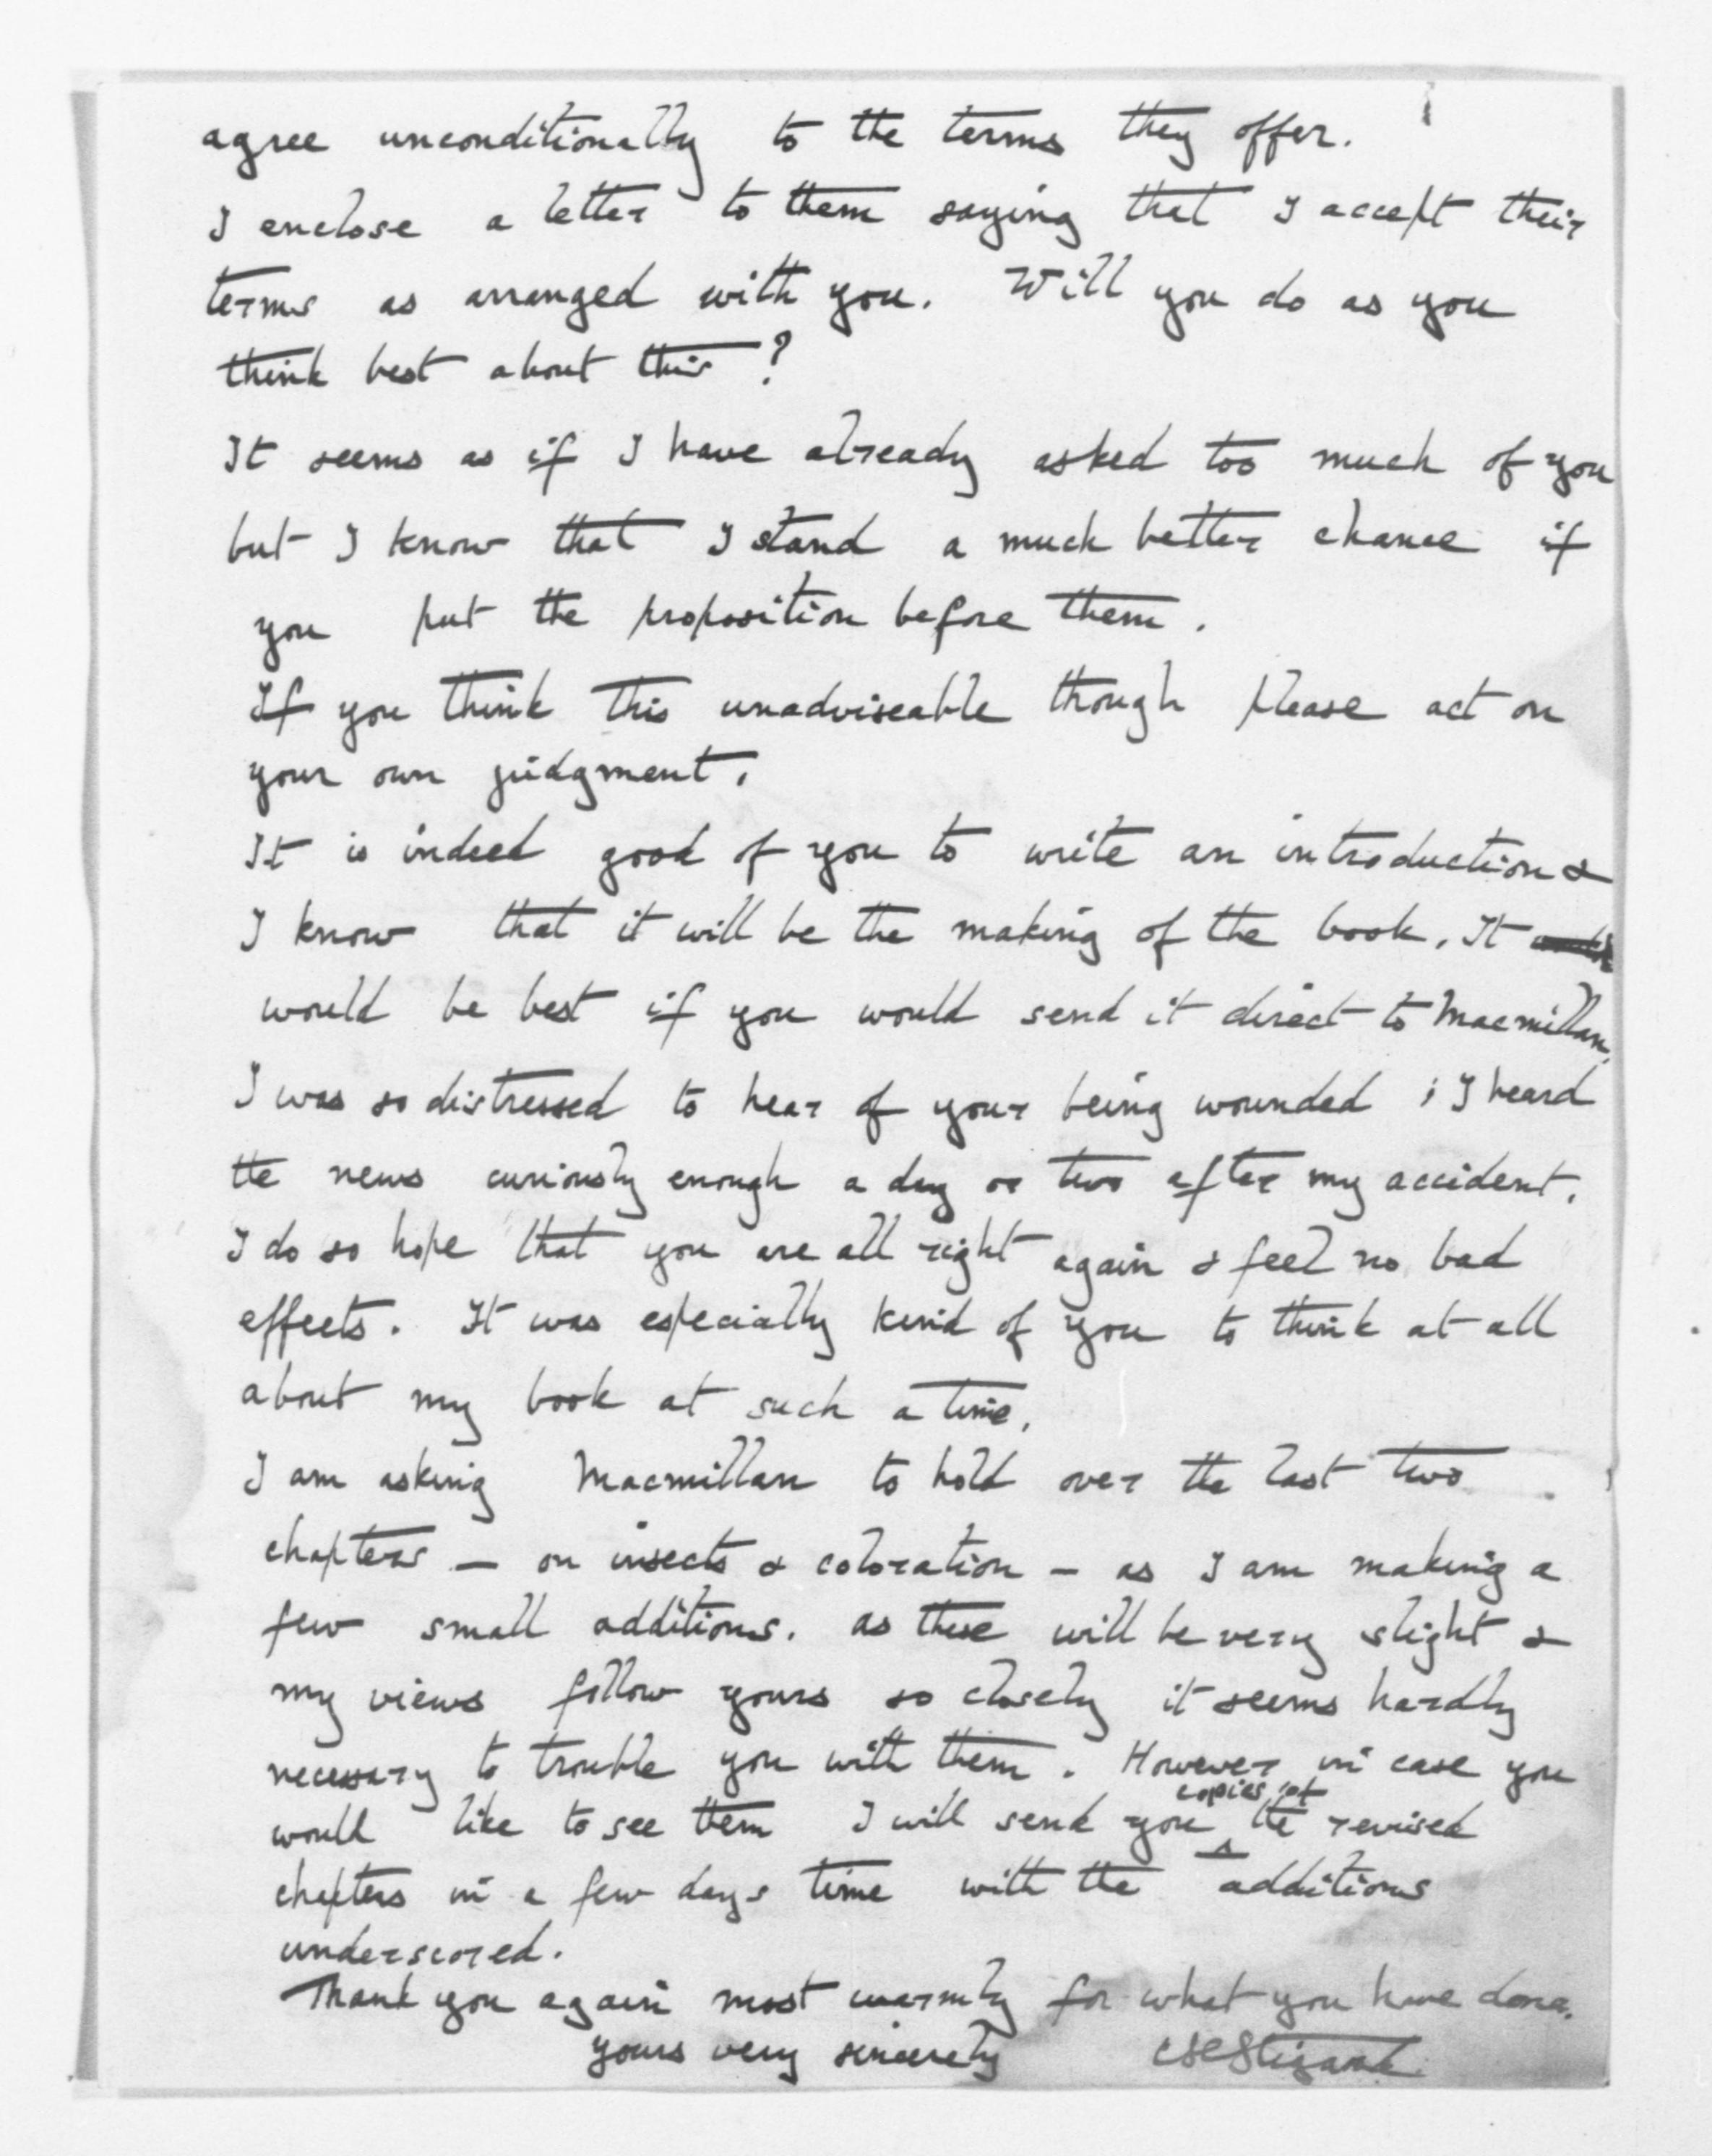 agree unconditionally to the terms they offer.
I enclose a letter to them saying that I accept their
terms as arranged with you. Will you do as you
think best about this?
It seems as if I have already asked too much of you
but I know that I stand a much better chance if
you put the proposition before them.
If you think this unadviseable though please act on
your own judgment.
It is indeed good of you to write an introduction &
I know that it will be the making of the book. It
would be best if you would send it direct to Macmillan.
I was so distressed to hear of your being wounded ; I heard
the news curiously enough a day or two after my accident.
I do so hope that you are all right again & feel no bad
effects. It was especially kind of you to think at all
about my book at such a time.
I am asking Macmillan to hold over the last two
chapters – on insects & coloration – as I am making a
few small additions. as these will be very slight &
my views follow yours so closely it seems hardly
necessary to trouble you with them. However in case you
copies of
would like to see them I will send you the revised
chapters in a few days time with the additions
underscored.
Thank you again most warmly for what you have done.
yours very sincerely